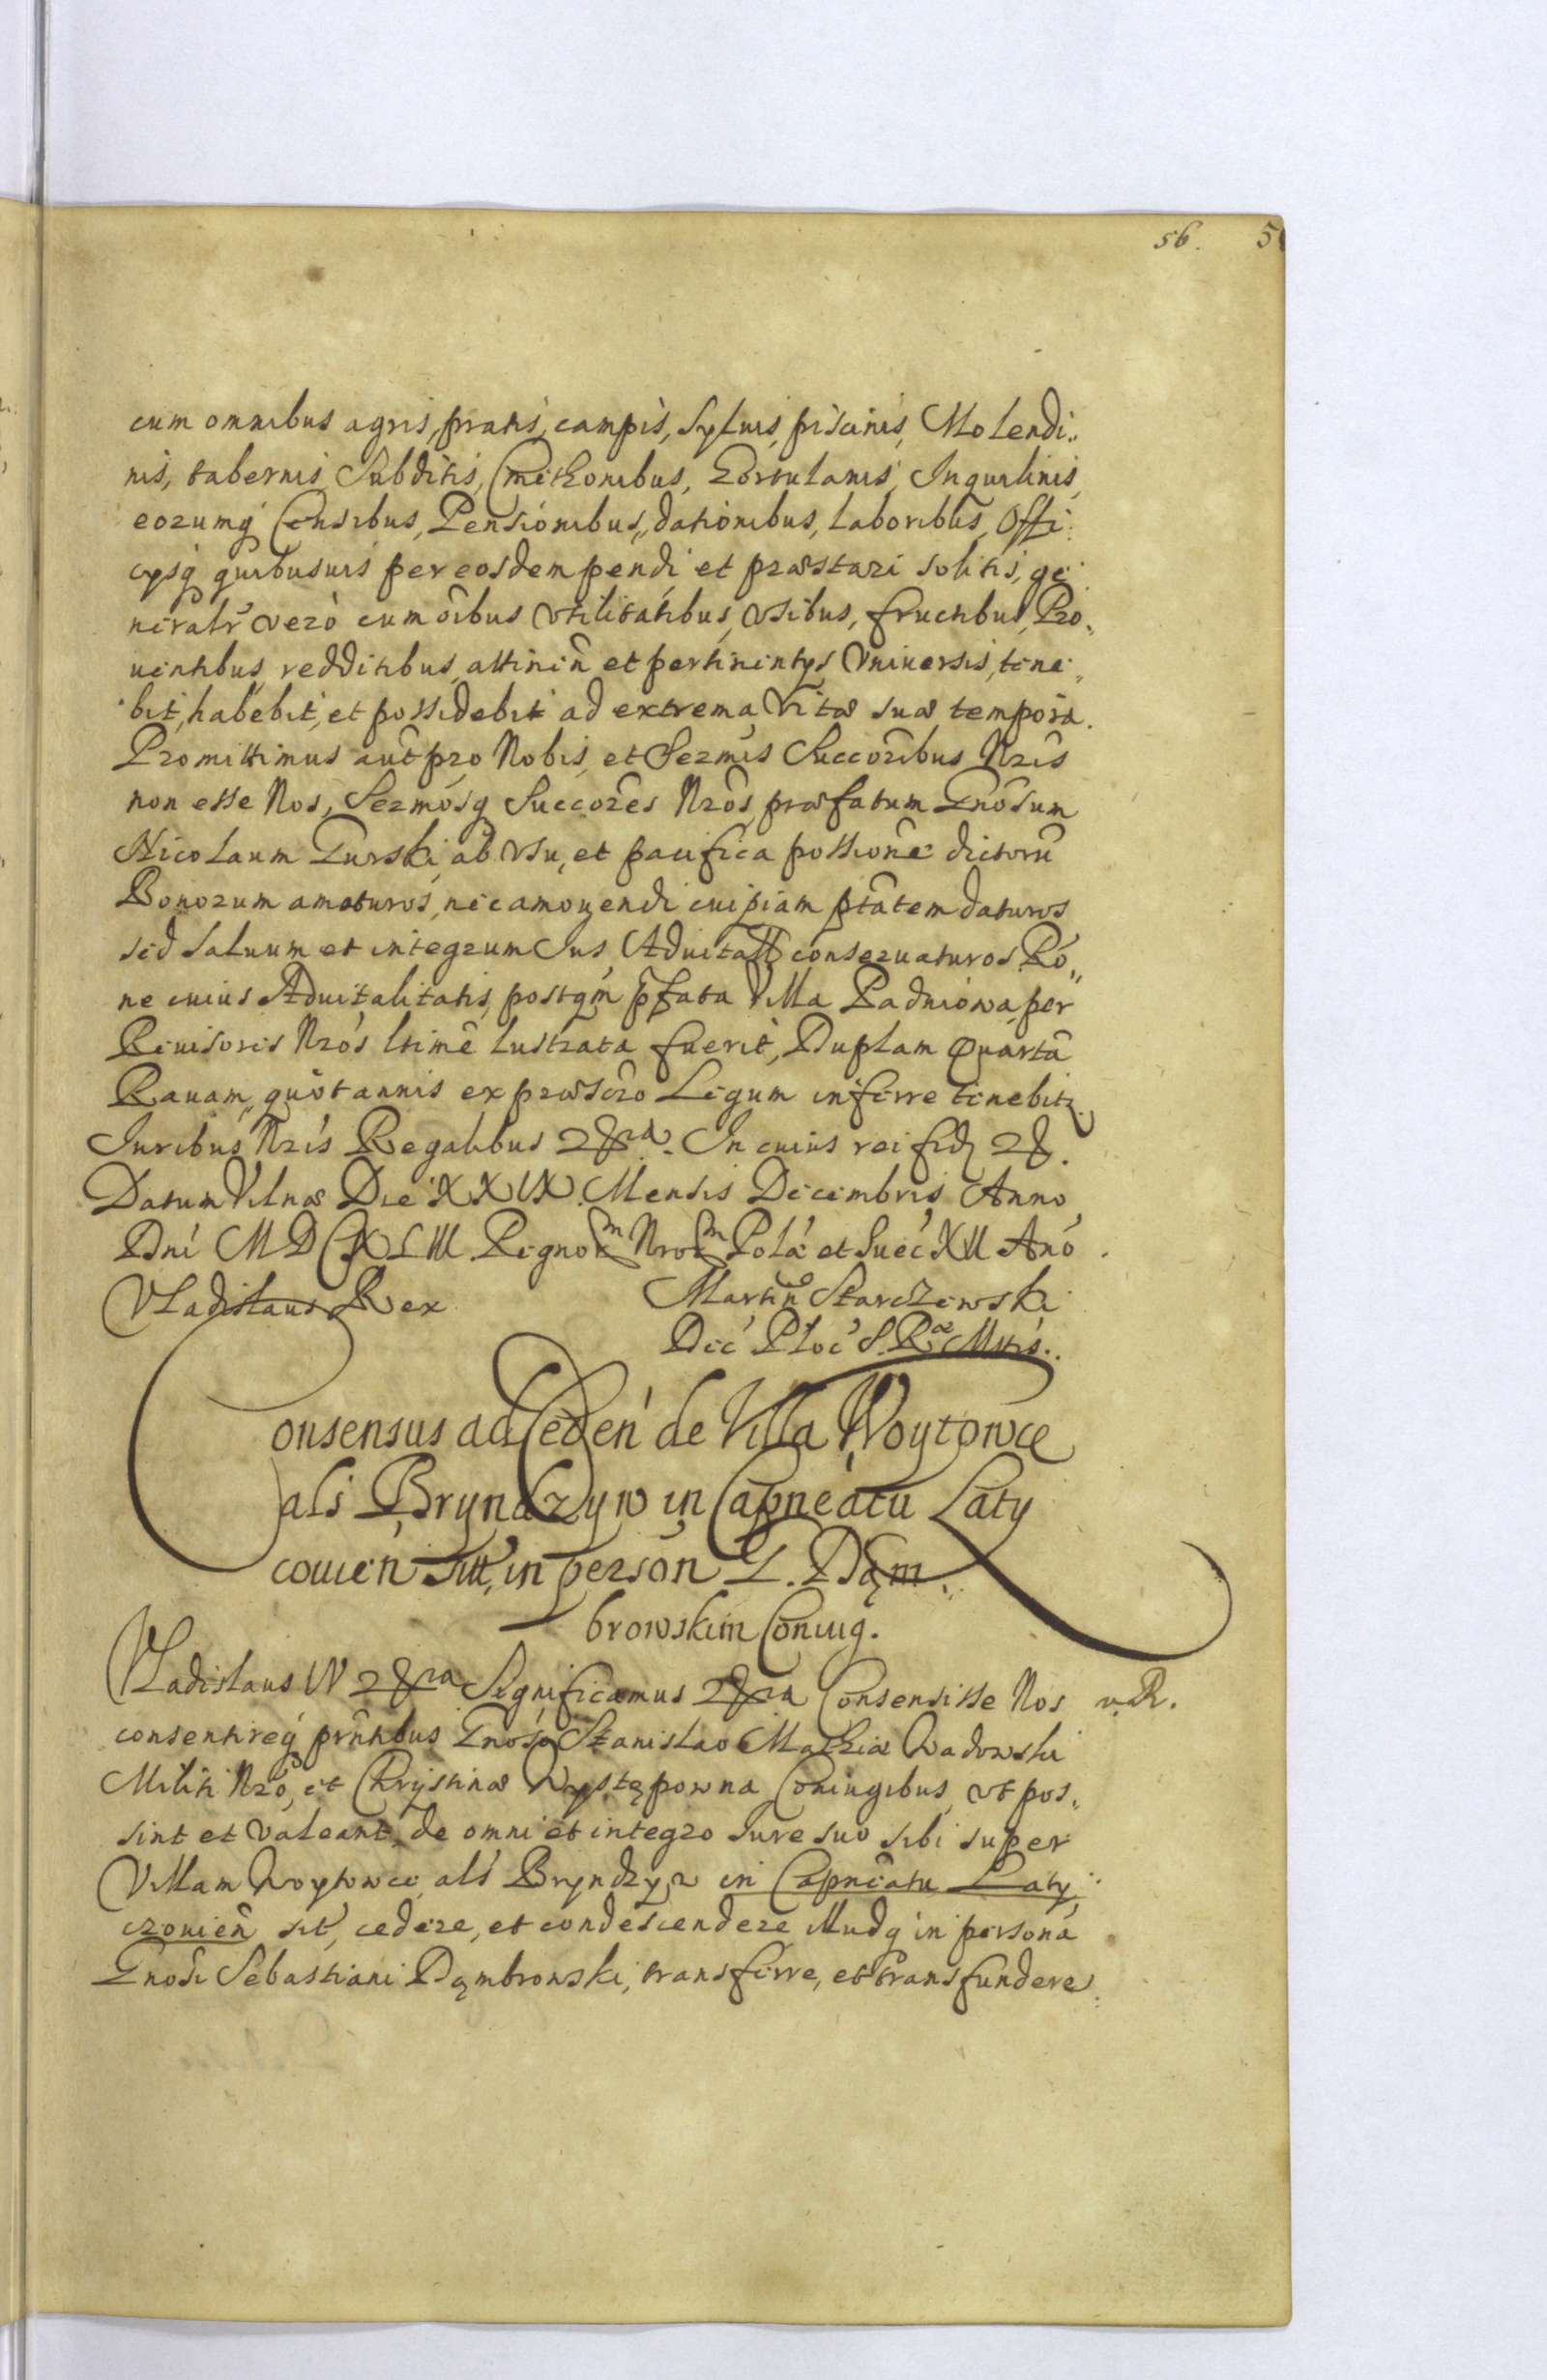 56. 5
cum omnibus agris, pratis, campis, Syluis, piscinis, Molendi„
nis, tabernis, Subditis, Cmethonibus, Hortulanis, Inquilinis,
eorumq́ Censibus, Pensionibus, dationibus, laboribus, Offi„
cysq́ quibusuis per eosdem pendi et præstari solitis, ge
neralr̃ verò cum oĩbus vtilitatibus, vsibus, fructibus, Pro„
uentibus, redditibus, attineñ et pertinentys Vniuersis, tene„
bit, habebit, et possidebit ad extrema Vitæ suæ tempora.
Promittimus aut̃ pro Nobis, et Sermis Succoribus Nr̃is
non esse Nos, Sermósq́ Succor̃es Nr̃os, præfatum Gnõsum
Nicolaum Turski, ab vsu, et pacifica possioñe dictorũ
Bonorum amoturos, nec amouendi cuipiam ptãtem daturos
sed saluum et integrum Ius Aduitatt̃ conseruaturos. Ró„
ne cuius Aduitalitatis, postqm̃ p̃fata Villa Padniowa, per
Reuisores Nr̃os ltimẽ lustrata fuerit, Duplam Quartã
Rauam, quotannis ex præscr̃o Legum inferre tenebitr.
Iuribus Nr̃is Regalibus &ra. In cuius rei fid &.
Datum Vilnæ Die XXIX. Mensis Decembris, Anno
Dni MDCXLIII Regnorm Nrorm Polá et Suec̃ XII Anó.
Vladislaus Rex
Martin9 Starczewski
Dec̃ Ploc̃ S. Ræ Mtis.
Consensus ad Ceden̄ de Villa Woytowce
als Bryndzyw in Capneatu Laty
couien̄ sitt, in person̄ G. Dąm„
browskim Coniug.
Vladislaus IV &ra Significamus &ra Consensisse Nos
v. R.
consentireq́ prñtibus Gnoso Stanislao Mathiæ Wadowski
Militi Nr̃o, et Chrystinæ Występowna Coniugibus, vt pos„
sint et valeant, de omni et integro Iure suo sibi super
Villam Woytowce als Bryndzyw in Capneatu Laty„
czouieñ sit, cedere, et condescendere illudq́ in personá
Gnosi Sebastiani Dąmbrowski, transferre, et transfundere